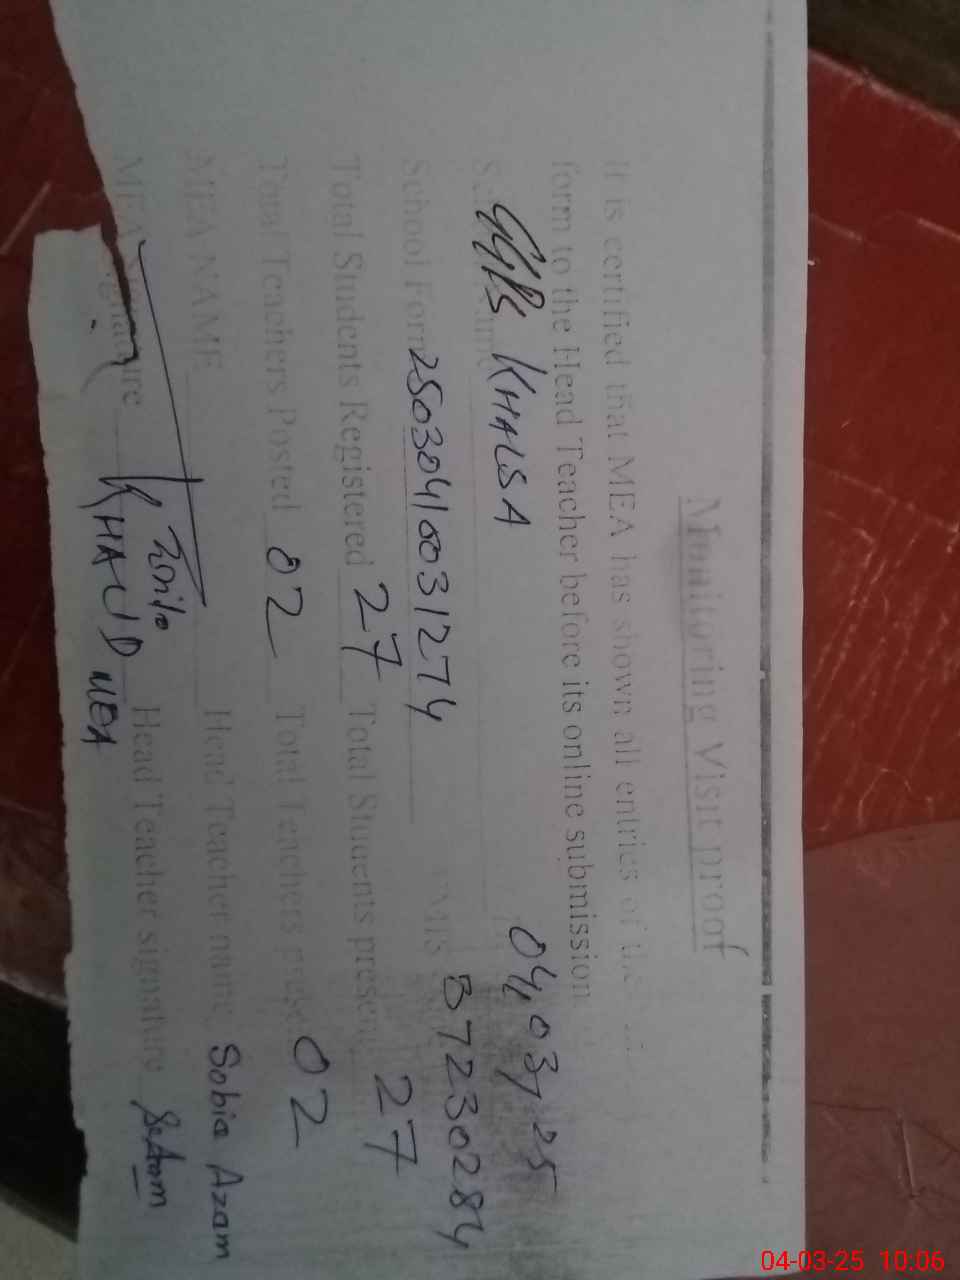 Monitoring Visit proof
It is certified that MEA has shown all entries of the
form to the Head Teacher before its online submission
KHALSA 04,03,25
School Form 25030410031274 EMIS 37230284
Total Students Registered 27 Total Students present 27
Total Teachers Posted 02 Total Teachers present 02
MEA NAME Head Teacher name Sobia Azam
MEA Signature Head Teacher signature S.Azam
MEA
04-03-25 10:06